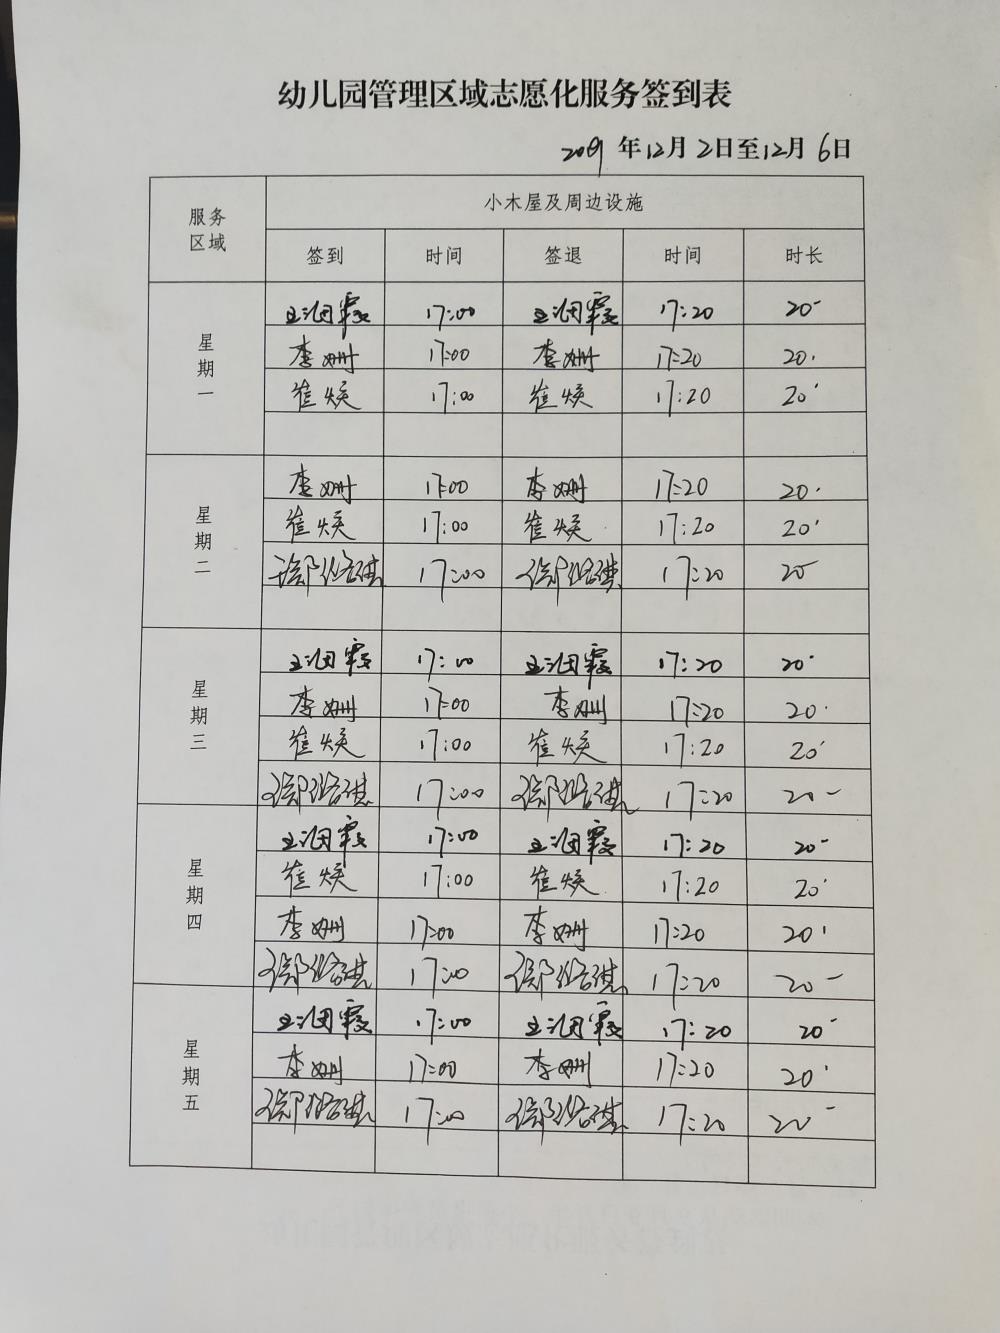 幼儿园管理区域志愿化服务签到表
2019 年 12月 2日至12月 6日
服务区域 小木屋及周边设施
签到 时间 签退 时间 时长
星期一
王润霞 17:00 王润霞 17:20 20-
李姗 17:00 李姗 17:20 20.
崔焕 17:00 崔焕 17:20 20'
星期二
李姗 17:00 李姗 17:20 20.
崔焕 17:00 崔焕 17:20 20'
17:00 17:20 20-
星期三
王润霞 17:00 王润霞 17:20 20-
李姗 17:00 李姗 17:20 20.
崔焕 17:00 崔焕 17:20 20'
17:00 17:20 20-
星期四
王润霞 17:00 王润霞 17:20 20-
崔焕 17:00 崔焕 17:20 20'
李姗 17:00 李姗 17:20 20'
17:00 17:20 20-
星期五
王润霞 17:00 王润霞 17:20 20-
李姗 17:00 李姗 17:20 20'
17:00 17:20 20-